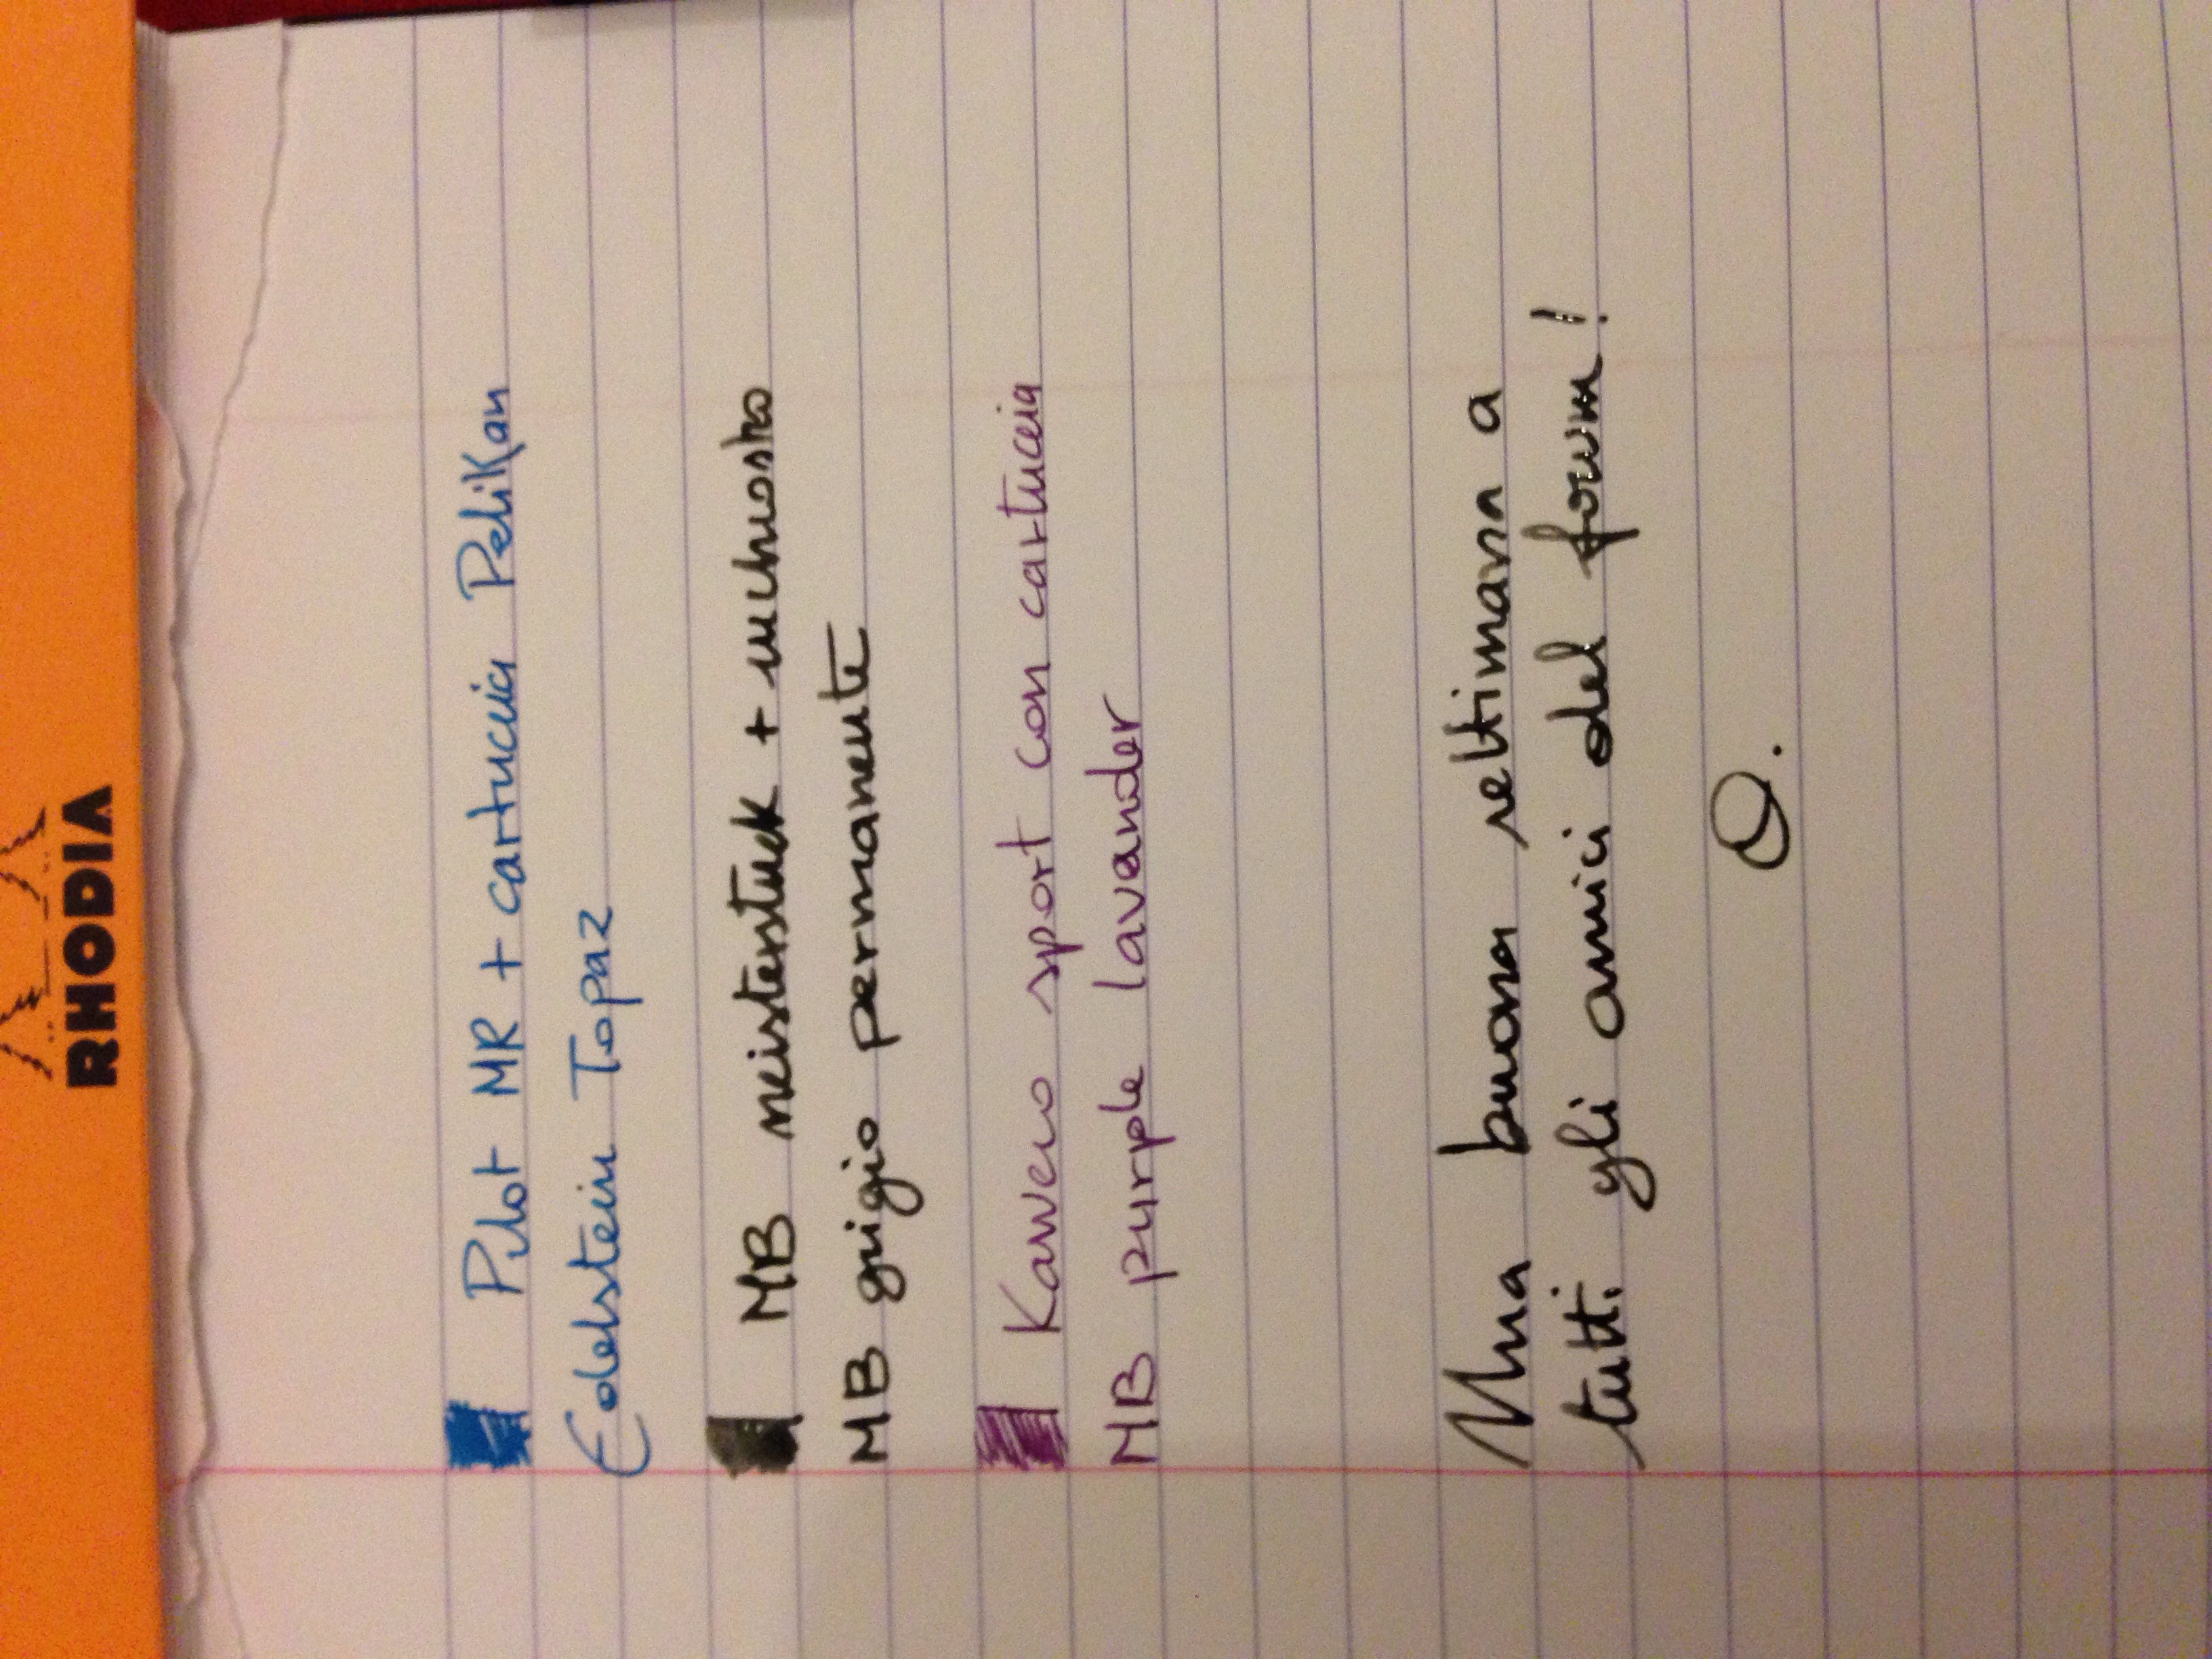 RHODIA
Pilot MR + cartuccia Pelikan
Edelstein Topaz
MB meisterstuck + inchiostro
MB grigio permanente
Kaweco sport con cartuccia
MB purple lavander
Una buona settimana a
tutti gli amici del forum!
O.